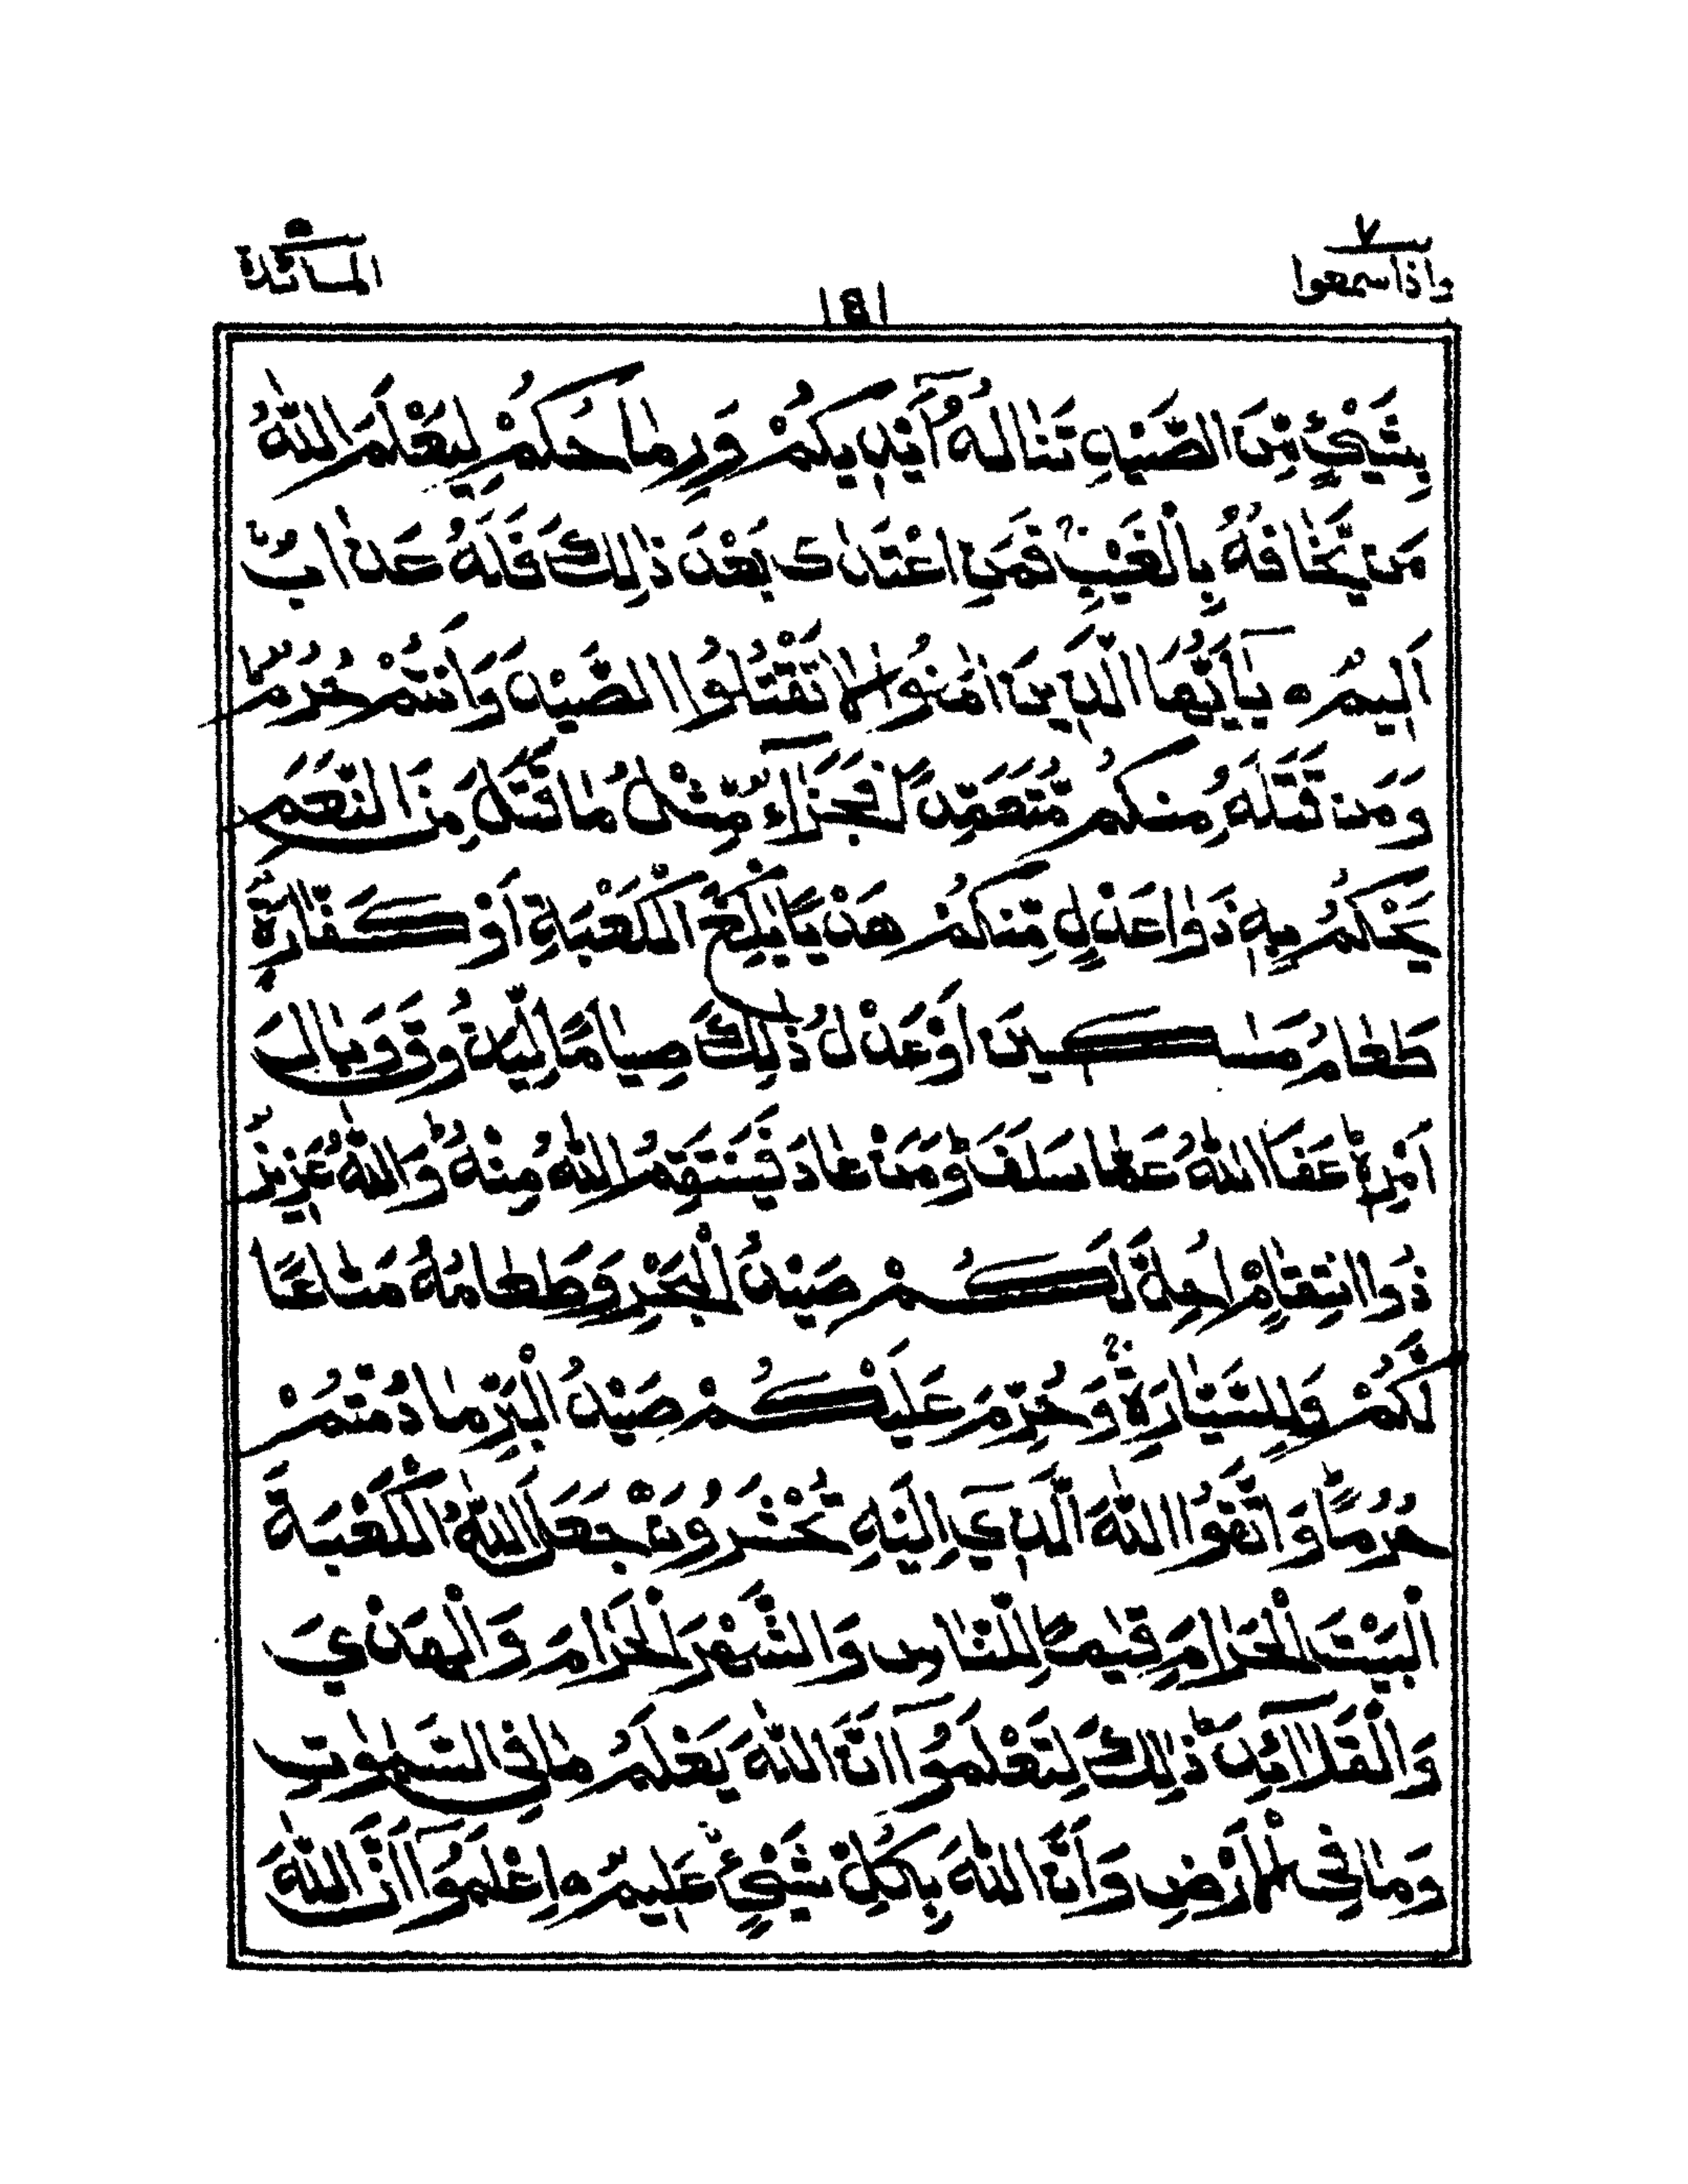 واذاسمعوا ٧
١٥١
المائدة ٥
بِشَيْءٍ مِّنَ الصَّيْدِ تَنَالُهٗٓ أَيْدِيكُمْ وَرِمَاحُكُمْ لِيَعْلَمَ اللّٰهُ
مَن يَّخَافُهٗ بِالْغَيْبِ فَمَنِ اعْتَدٰى بَعْدَ ذٰلِكَ فَلَهٗ عَذَابٌ
اَلِيْمٌ ○ يٰٓاَيُّهَا الَّذِيْنَ اٰمَنُوْا لَا تَقْتُلُوا الصَّيْدَ وَاَنْتُمْ حُرُمٌ
وَمَن قَتَلَهٗ مِنكُم مُّتَعَمِّدًا فَجَزَآءٌ مِّثْلُ مَا قَتَلَ مِنَ النَّعَمِ
يَحْكُمُ بِهٖ ذَوَا عَدْلٍ مِّنكُمْ هَدْيًا بٰلِغَ الْكَعْبَةِ اَوْ كَفَّارَةٌ
طَعَامُ مَسٰكِيْنَ اَوْ عَدْلُ ذٰلِكَ صِيَامًا لِّيَذُوْقَ وَبَالَ
اَمْرِهٖ عَفَا اللّٰهُ عَمَّا سَلَفَ وَمَنْ عَادَ فَيَنْتَقِمُ اللّٰهُ مِنْهُ وَاللّٰهُ عَزِيْزٌ
ذُو انْتِقَامٍ اُحِلَّ لَكُمْ صَيْدُ الْبَحْرِ وَطَعَامُهٗ مَتَاعًا
لَّكُمْ وَلِلسَّيَّارَةِ وَحُرِّمَ عَلَيْكُمْ صَيْدُ الْبَرِّ مَا دُمْتُمْ
حُرُمًا وَاتَّقُوا اللّٰهَ الَّذِيْٓ اِلَيْهِ تُحْشَرُوْنَ جَعَلَ اللّٰهُ الْكَعْبَةَ
الْبَيْتَ الْحَرَامَ قِيٰمًا لِّلنَّاسِ وَالشَّهْرَ الْحَرَامَ وَالْهَدْيَ
وَالْقَلَآئِدَ ذٰلِكَ لِتَعْلَمُوْٓا اَنَّ اللّٰهَ يَعْلَمُ مَا فِي السَّمٰوٰتِ
وَمَا فِي الْاَرْضِ وَاَنَّ اللّٰهَ بِكُلِّ شَيْءٍ عَلِيْمٌ ○ اِعْلَمُوْٓا اَنَّ اللّٰهَ